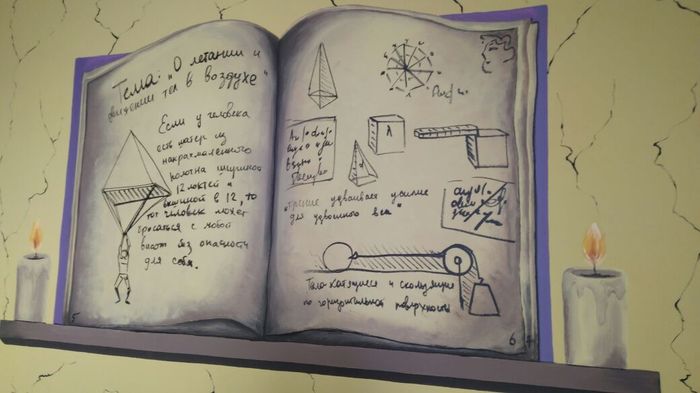 Тема: "О летании и
движении тел в воздухе"
Если у человека
есть шатер из
накрахмаленного
полотна шириной
12 локтей и
вышиной в 12, то
тот человек может
бросаться с любой
высот без опасности
для себя.
5
"Трение удваивает усилие
для удвоенного веса"
Тела катящиеся и скользящие
по горизонтальной поверхности
6